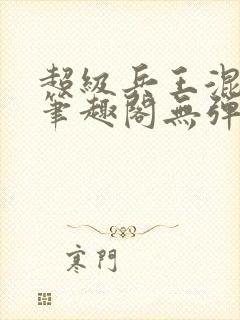 超級兵王混
筆趣閣無彈
寒門